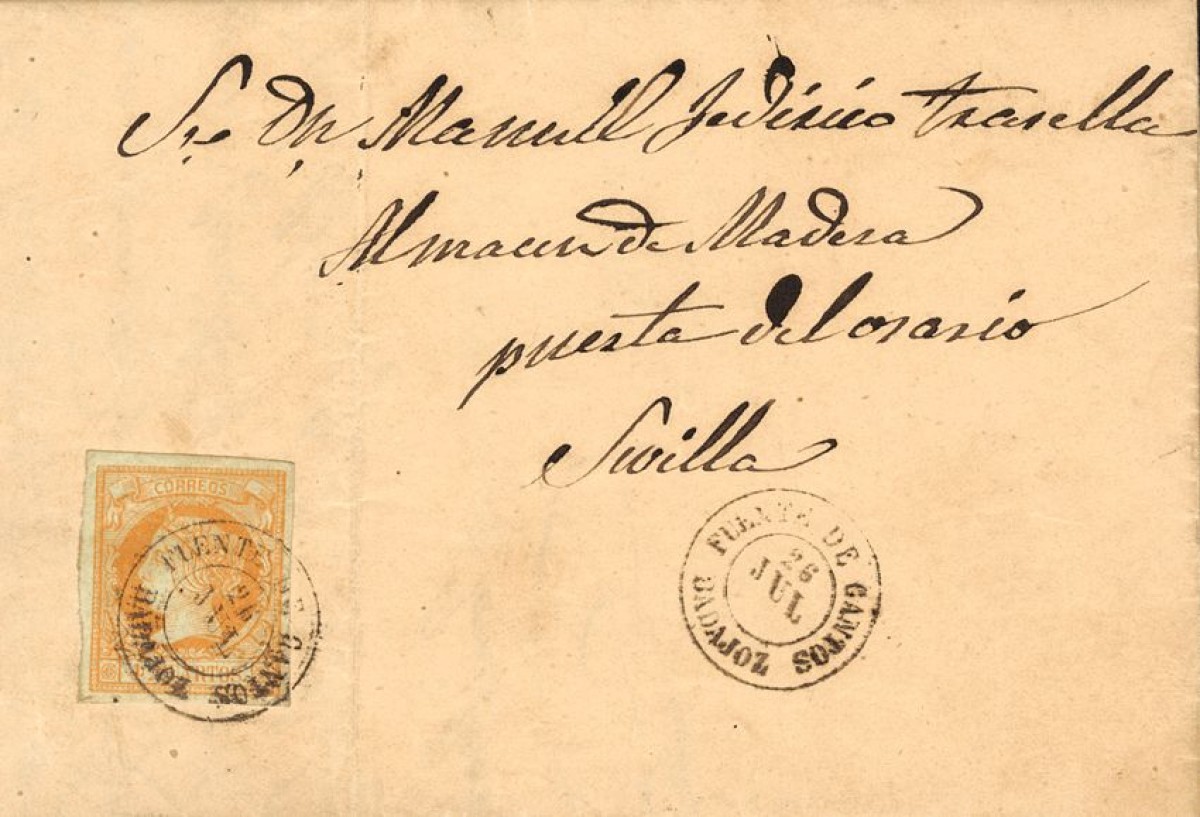 Sre Dn Manuel Federico Trarella
Almacen de Madera
puerta del osario
Sevilla
CORREOS
FUENTE DE CANTOS
26
JUL
BADAJOZ
FUENTE DE CANTOS
26
JUL
BADAJOZ